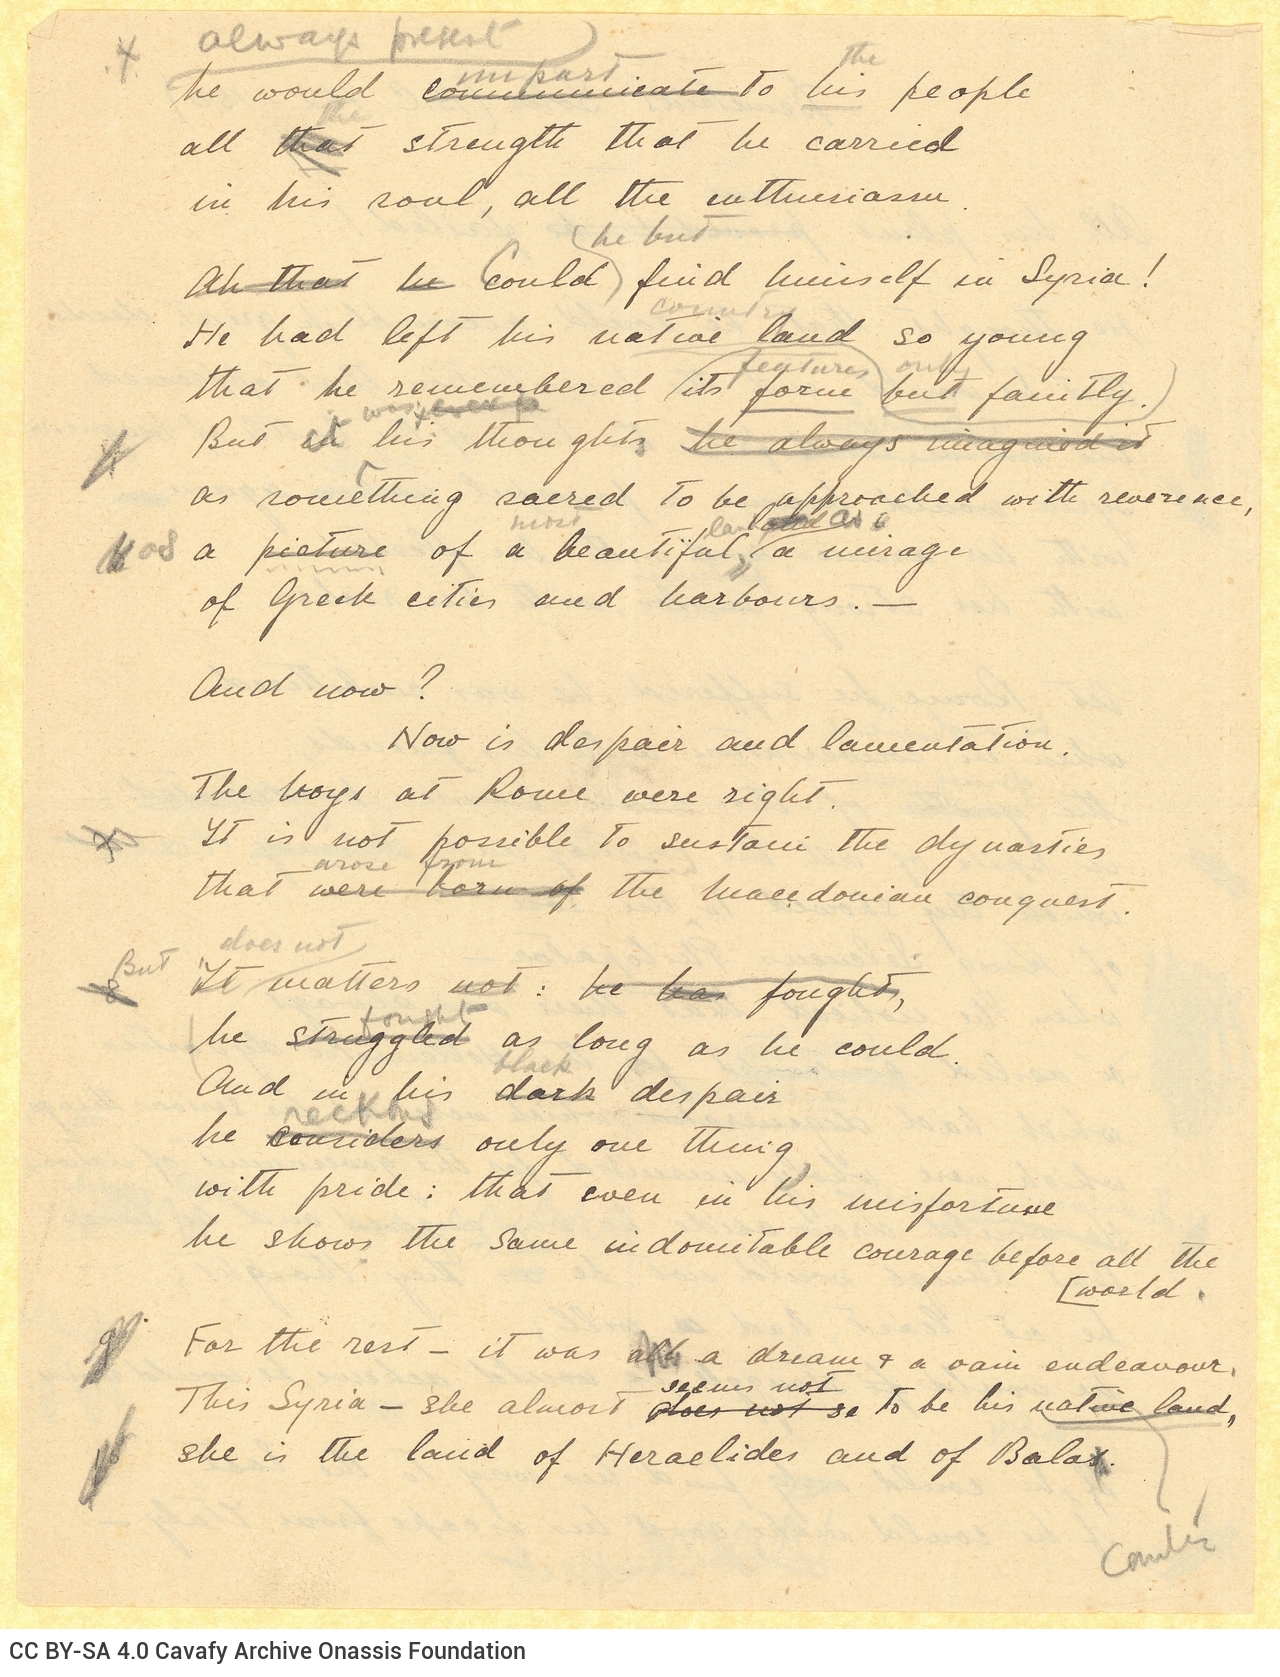 always present
4.
impart the
he would communicate to his people
the
all that strength that he carried
in his soul, all the enthusiasm.
he but
Ah that he could find himself in Syria!
country
He had left his native land so young
features only
that he remembered its form but faintly.
it was
But in his thoughts he always imagined it
as something sacred to be approached with reverence,
most land and as a
as a picture of a beautiful, a mirage
of Greek cities and harbours. —
And now?
Now is despair and lamentation.
The boys at Rome were right.
7
It is not possible to sustain the dynasties
arose from
that were born of the Macedonian conquest.
does not
But
8
It matters not: he has fought,
fought
he struggled as long as he could.
black
And in his dark despair
reckons
he considers only one thing
with pride: that even in his misfortune
he shows the same indomitable courage before all the
[world.
9
For the rest — it was all a dream & a vain endeavour.
seems not
This Syria — she almost does not se to be his native land,
she is the land of Heraclides and of Balas.